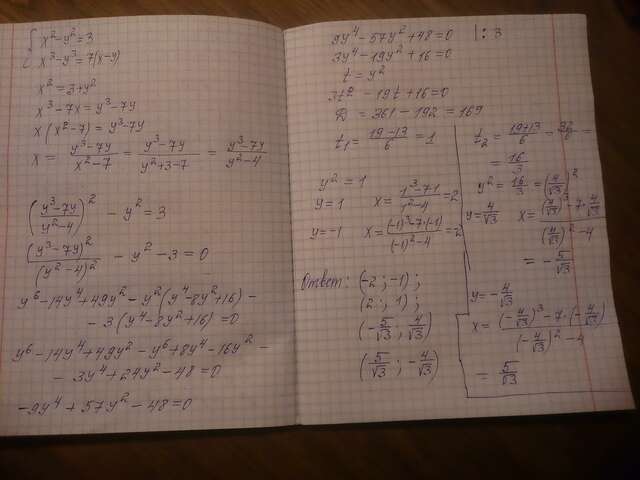 { x²-y²=3
x³-y³=7(x-y)
x²=3+y²
x³-7x=y³-7y
x(x²-7)=y³-7y
x = (y³-7y)/(x²-7) = (y³-7y)/(y²+3-7) = (y³-7y)/(y²-4)
((y³-7y)/(y²-4))² - y²=3
(y³-7y)²/(y²-4)² - y²-3=0
y⁶-14y⁴+49y²-y²(y⁴-8y²+16)-
-3(y⁴-8y²+16)=0
y⁶-14y⁴+49y²-y⁶+8y⁴-16y²-
-3y⁴+24y²-48=0
-9y⁴+57y²-48=0
9y⁴-57y²+48=0 |:3
3y⁴-19y²+16=0
t=y²
3t²-19t+16=0
D=361-192=169
t₁=(19-13)/6=1
y²=1
y=1 x=(1³-7·1)/(1²-4)=2
y=-1 x=((-1)³-7·(-1))/((-1)²-4)=-2
Ответ: (-2;-1);
(2;1);
(-5/√3; 4/√3)
(5/√3; -4/√3)
t₂=(19+13)/6=32/6=
=16/3
y²=16/3=(4/√3)²
y=4/√3 x=((4/√3)³-7·4/√3)/((4/√3)²-4)
=-5/√3
y=-4/√3
x=((-4/√3)³-7·(-4/√3))/((-4/√3)²-4)
=5/√3